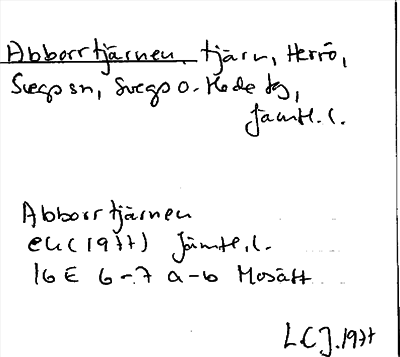 Abborrtjärnen, tjärn, Herrö,
Svegs sn, Svegs o. Hede tg,
Jämtl. l.
Abborrtjärnen
ek (1977) Jämtl. l.
16 E 6-7 a-b Mosätt
LCJ. 1977